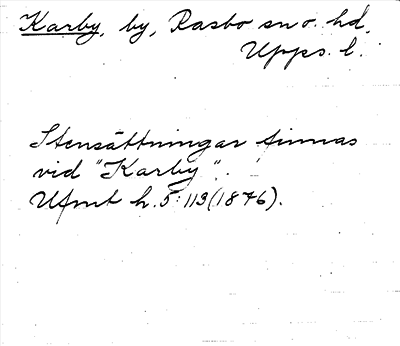 Karby, by, Rasbo sn o. hd,
Upps. l.
Stensättningar finnas
vid "Karby".
Ufmt h. 5: 113 (1876).